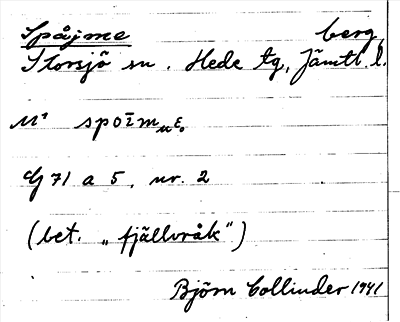 Spåjme berg
Storsjö sn. Hede tg, Jämtl. l.
M¹ spoīmᵤɛ.
G 71 a 5, nr. 2
(bet. „fjällvråk”)
Björn Collinder 1941